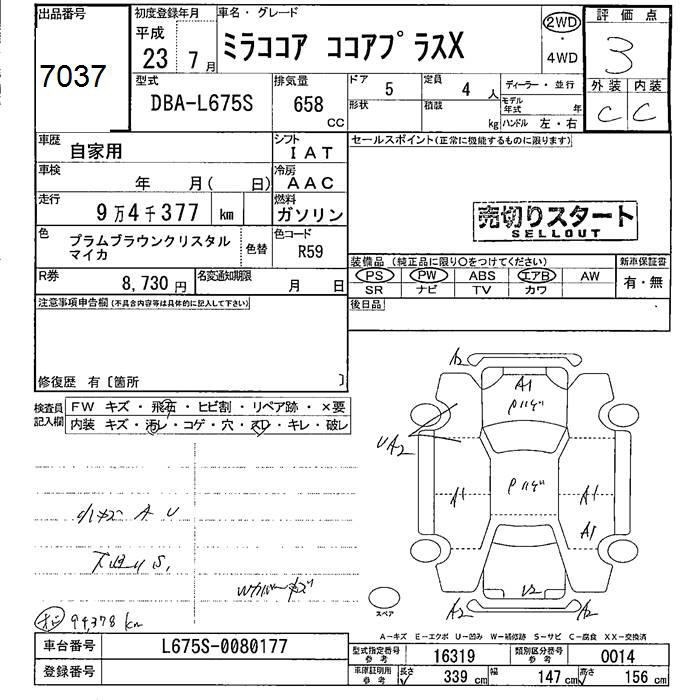 出品番号 初度登録年月 車名・グレード 評価点
7037 平成 23年 7月 ミラココア ココアプラスX 2WD・4WD 3
型式 排気量 ドア 5 定員 4人 ディーラー・並行 外装 内装
DBA-L675S 658 CC 形状 積載 kg モデル年式 年 ハンドル 左・右 C C
車歴 自家用 シフト IAT セールスポイント(正常に機能するものに限ります)
車検 年 月( 日) 冷房 AAC
走行 9万4千377 km 燃料 ガソリン 売切りスタート
SELLOUT
色 プラムブラウンクリスタル 色替 色コード R59
マイカ
装備品(純正品に限り○をつけてください) 新車保証書
R券 8,730円 名変通知期限 月 日 PS PW ABS エアB AW 有・無
SR ナビ TV カワ
注意事項申告欄(不具合内容等は具体的に記入して下さい) 後日品
修復歴 有〔箇所 〕
検査員記入欄 FW キズ・飛石・ヒビ割・リペア跡・×要
内装 キズ・汚レ・コゲ・穴・スレ・キレ・破レ
A2
A1
UA2
A1 A1
A1
小キズ A U
下廻りS,
A2 A2
スペア
94,378 km
A-キズ E-エクボ U-凹み W-補修跡 S-サビ C-腐食 XX-交換済
車台番号 L675S-0080177 型式指定番号 参考 16319 類別区分番号 参考 0014
登録番号 車庫証明用 参考 長さ 339 cm 幅 147 cm 高さ 156 cm